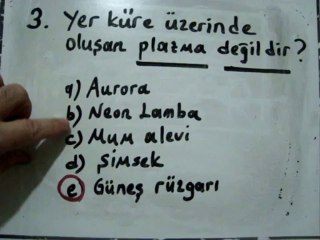 3. Yer küre üzerinde
oluşan plazma değildir?
a) Aurora
b) Neon Lamba
c) Mum alevi
d) Şimşek
e) Güneş rüzgarı